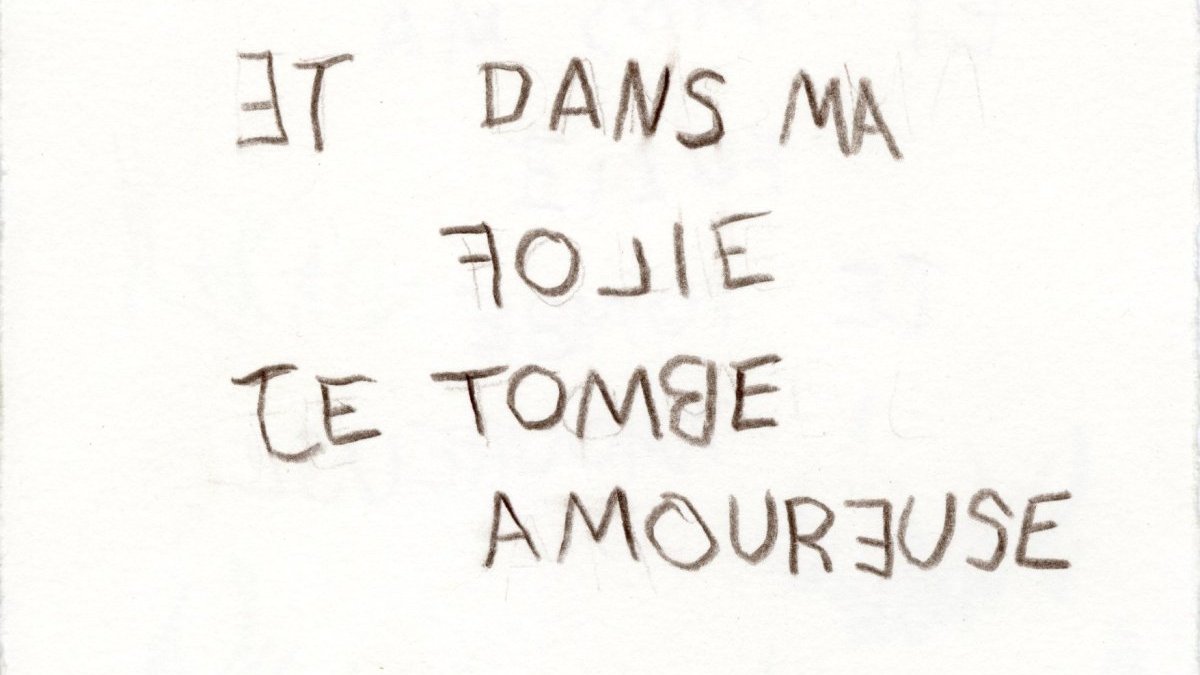 ET DANS MA
FOLIE
JE TOMBE
AMOUREUSE